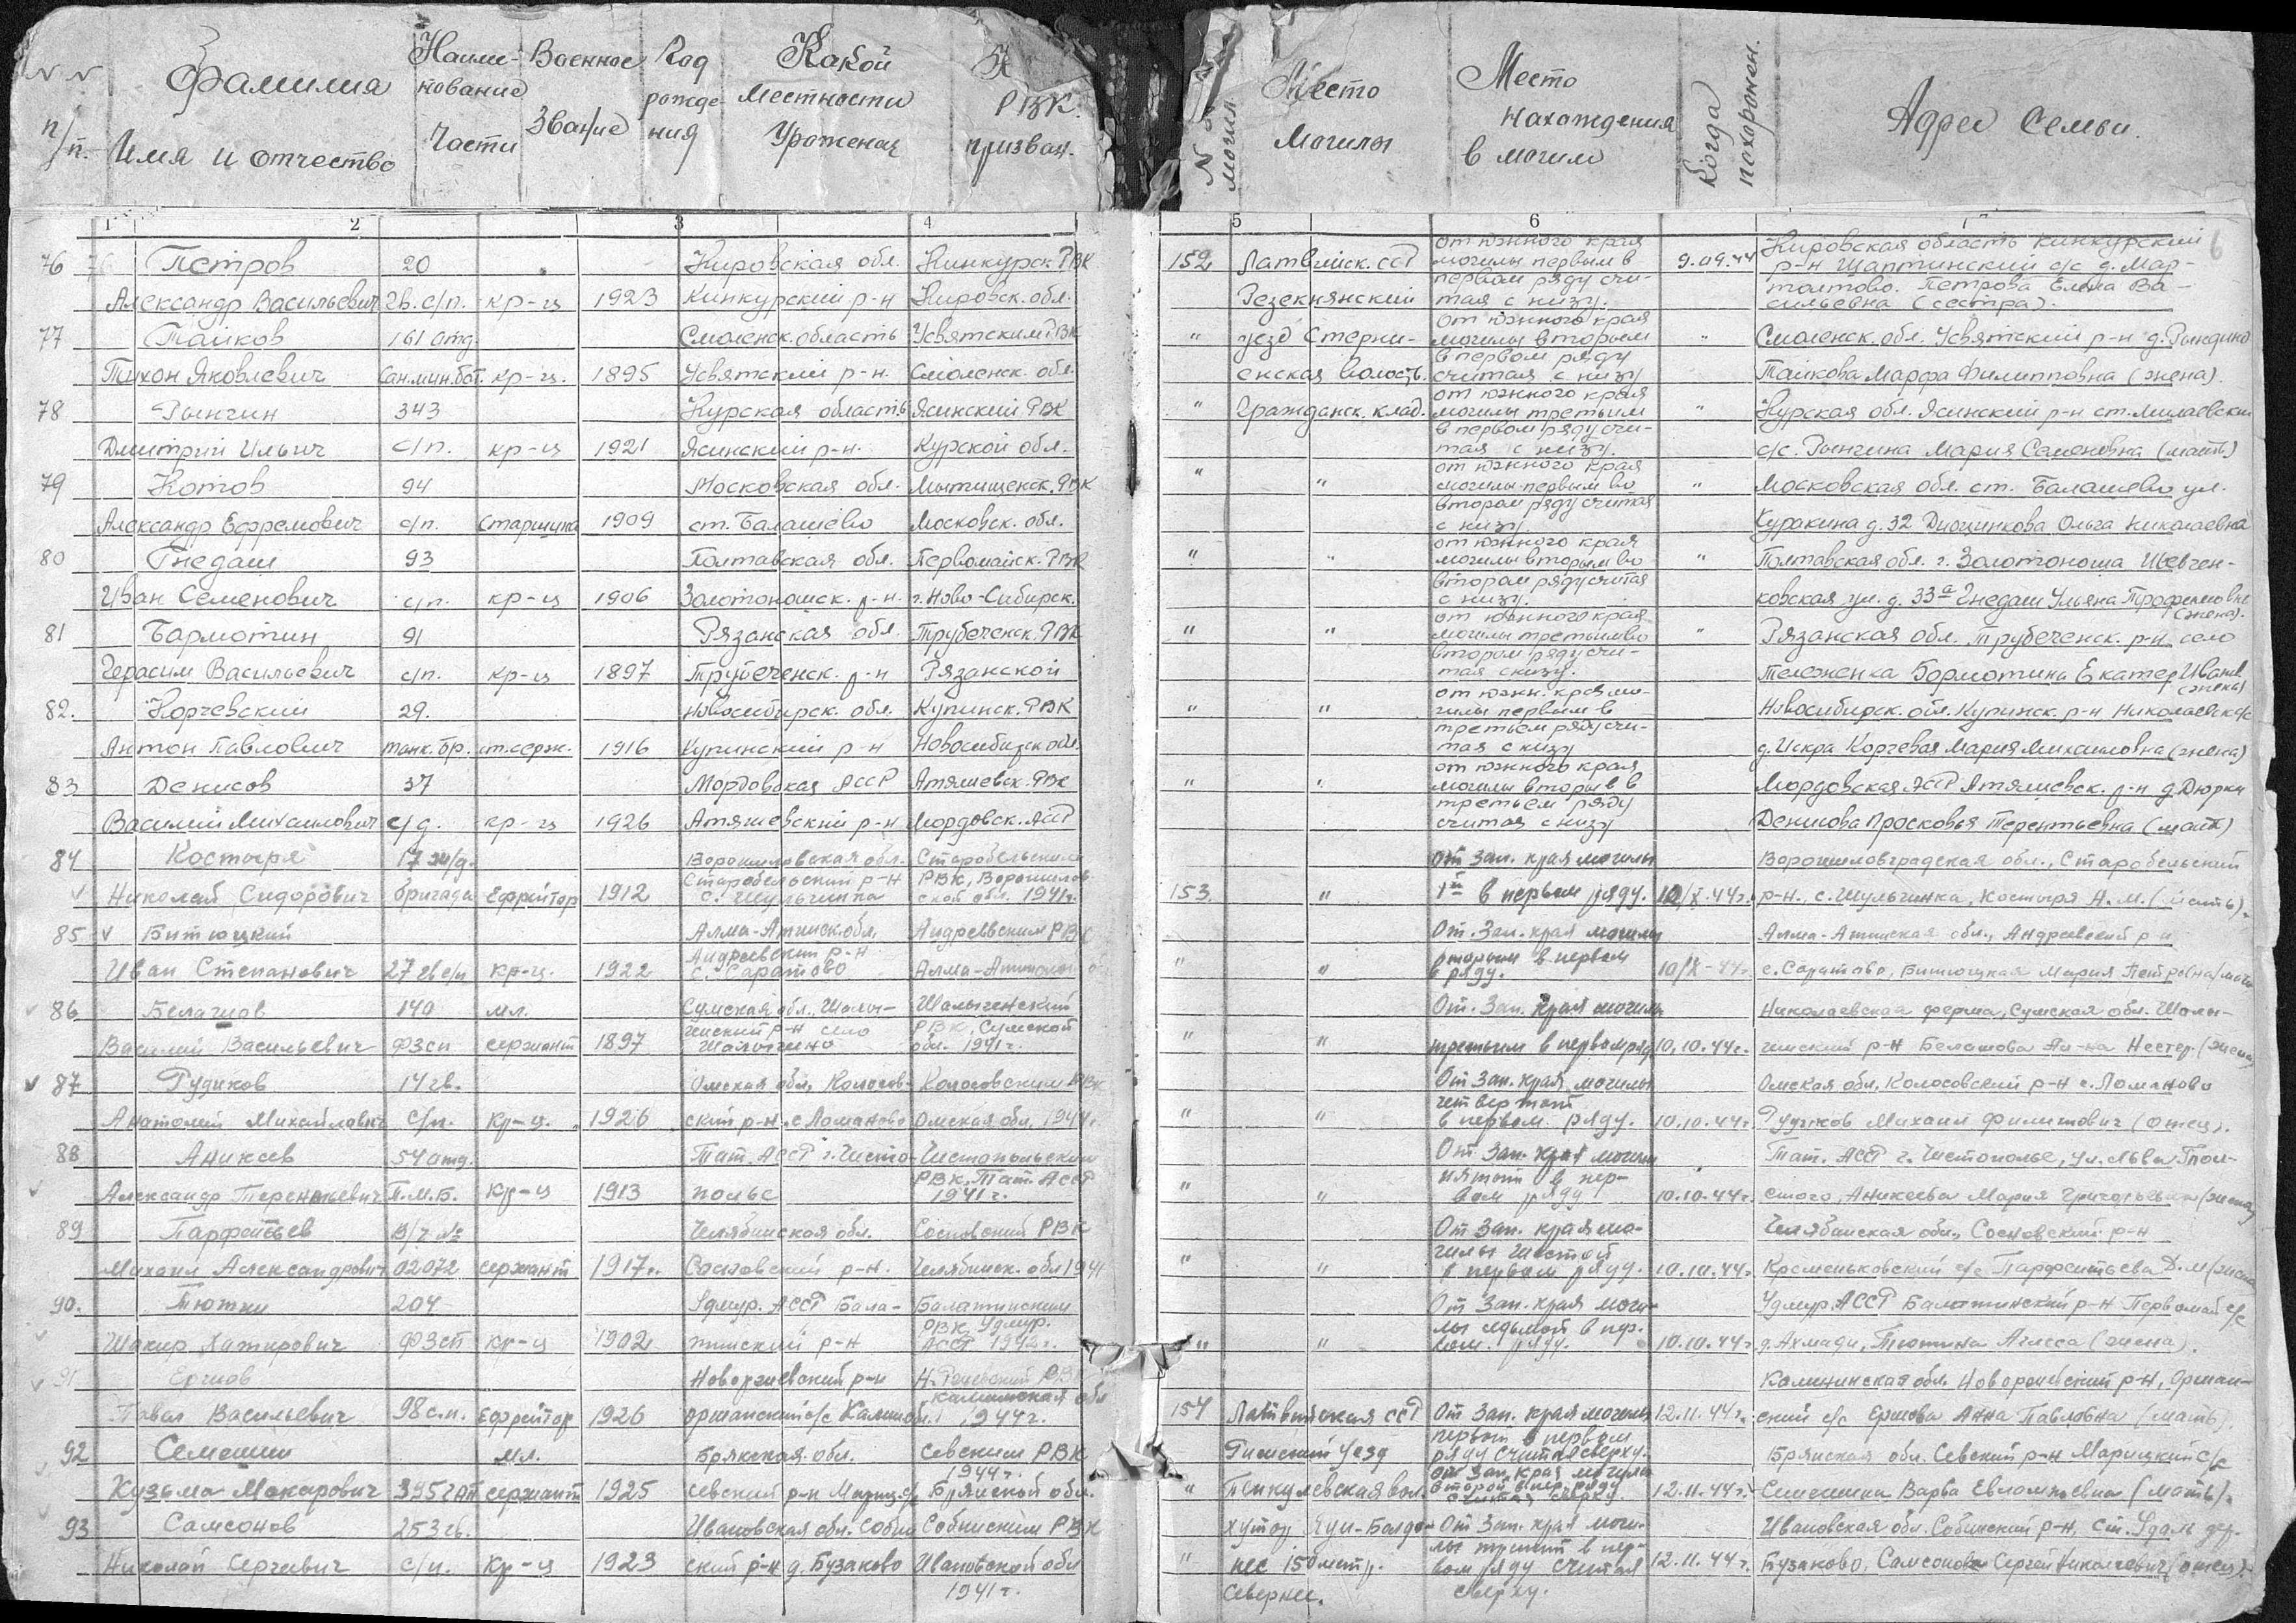 N N п/п.
Фамилия Имя и отчество
Наиме-нование Части
Военное Звание
Год рожде-ния
Какой Местности Уроженец
РВК призван.
N могил
Место Могилы
Место Нахождения в могиле
Когда похоронен.
Адрес Семьи.
1 2 3 4 5 6 7
6
76 76 Петров 20 Кировская обл. Кикнурск РВК
Александр Васильевич Гв. с/п. кр-ц 1923 Кикнурский р-н Кировск. обл.
152 Латвийск. ССР
Резекнянский
от южного края
могилы первым в
первом ряду счи-
тая с низу.
9.09.44
Кировская область Кикнурский
р-н Шаптинский с/с д. Мар-
Петрова Елена Ва-
сильевна (сестра).
77 Тайков 161 отд. Смоленск. область Усвятским РВК
Тихон Яковлевич Сан.мин.бат. кр-ц. 1895 Усвятский р-н. Смоленск. обл.
" уезд Стерни-
енская волость.
от южного края
могилы вторым
в первом ряду
считая с низу
" Смоленск. обл. Усвятский р-н д. Рындино
Тайкова Марфа Филипповна (жена).
78 Рынгин 343 Курская область Ясинский РВК
Дмитрий Ильич с/п. кр-ц 1921 Ясинский р-н. Курской обл.
" Гражданск. клад.
от южного края
могилы третьим
в первом ряду счи-
тая с низу.
" Курская обл. Ясинский р-н ст.
с/с. Рынгина Мария Семеновна (мать)
79 Котов 94 Московская обл. Мытищенск. РВК
Александр Ефремович с/п. Старшина 1909 ст. Балашево Московск. обл.
" "
от южного края
могилы первым во
втором ряду считая
с низу.
" Московская обл. ст. Балашево ул.
Куракина д. 32 Ольга Николаевна
80 Гнедаш 93 Полтавская обл. Первомайск. РВК
Иван Семенович с/п. кр-ц 1906 Золотоношск. р-н. г. Ново-Сибирск.
" "
от южного края
могилы вторым во
втором ряду считая
с низу.
" Полтавская обл. г. Золотоноша Шевчен-
ковская ул. д. 33а Гнедаш Ульяна
(жена).
81 Бармотин 91 Рязанская обл. Трубеченск. РВК
Герасим Васильевич с/п. кр-ц 1897 Трубеченск. р-н Рязанской
" "
от южного края
могилы третьим во
втором ряду счи-
тая с низу.
" Рязанская обл. Трубеченск. р-н. село
Бормотина Екатер Иванов
(жена)
82. Корчевский 29. Новосибирск. обл. Купинск. РВК
Антон Павлович танк. бр. ст. серж. 1916 Купинский р-н Новосибирск обл.
" "
от южн. края мо-
гилы первым в
третьем ряду счи-
тая с низу
Новосибирск. обл. Купинск. р-н Николаевск с/с
д. Искра Корчевая Мария Михаиловна (жена)
83 Денисов 37 Мордовская АССР Атяшевск. РВК
Василий Михаилович с/д. кр-ц 1926 Атяшевский р-н Мордовск. АССР
" "
от южного края
могилы вторым в
третьем ряду
считая с низу
Мордовская АССР Атяшевск. р-н д. Дюрки
Денисова Просковья Терентьевна (мать)
84 Костыря 17 Ворошиловская обл. Старобельским
Николай Сидорович бригада Ефрейтор 1912 Старобельский р-н с. Шульгинка РВК, Ворошилов-ской обл. 1941г.
153. "
От Зап. края могилы
1й в первом ряду. 10/X-44г.
Ворошиловградская обл., Старобельский
р-н. с. Шульгинка, Костыря А. М. (мать).
85 Битюцкий Алма-Атинск обл. Андреевским РВК
Иван Степанович 27 гв с/п кр-ц. 1922 Андреевский р-н с. Саратово Алма-Атинской
" "
От. Зап. края могилы
вторым в первом
ряду. 10/X-44г.
Алма-Атинская обл., Андреевский р-н
с. Саратово, Битюцкая Мария Петровна
86 Белашов 140 мл. Сумская обл., Шалы- Шалыгинский
Василий Васильевич ФЗСП сержант 1897 гинский р-н село Шалыгино РВК, Сумской обл. 1941г.
" "
От. Зап. края могилы
третьим в первом ряд 10.10.44г.
Николаевская ферма, Сумская обл. Шалы-
гинский р-н Белашова Нестер. (жена)
87 Рудиков 14 гв. Омская обл., Колосов- Колосовским РВК
Анатолий Михайлович с/п. кр-ц. 1926 ский р-н. с. Ломаново Омская обл. 1944г.
" "
От Зап. края могилы
четвертый
в первом ряду. 10.10.44г
Омская обл, Колосовский р-н с. Ломаново
Михаил Филиппович (отец).
88 Аникеев 54 отд. Тат. АССР г. Чисто- Чистопольским
Александр Терентьевич П.М.Б. кр-ц 1913 полье РВК, Тат. АССР 1941г.
" "
От Зап. края могилы
пятый в пер-
вом ряду 10.10.44г.
Тат. АССР г. Чистополье, ул. Льва Тол-
стого, Аникеева Мария Григорьевна (жена)
89 Парфентьев В/ч № Челябинская обл. Сосновский РВК
Михаил Александрович 02072 сержант 1917г. Сосновский р-н. Челябинск. обл 1941
" "
От Зап. края мо-
гилы шестой
в первом ряду. 10.10.44г
Челябинская обл., Сосновский р-н
Кременьковский с/с Парфентьева Д. М (жена
90. Тюткин 204 Удмур. АССР Бала- Балатинским
Шакир ФЗСП кр-ц 1902 р-н РВК, Удмур. АССР 1942г.
" "
От Зап. края моги-
лы седьмой в пер-
вом. ряду. 10.10.44г
Удмур. АССР Балатинский р-н Первомай с/с
д. Ахмади, (жена).
91 Ершов Новоржевский р-н Н. Ржевский РВК
Павел Васильевич 98 с.п. Ефрейтор 1926 Оршанский с/с Калин обл. Калининская обл 1944г.
154 Латвийская ССР
Рижский уезд
От Зап. края могилы
первым в первом
ряду считая сверху. 12.11.44г.
Калининская обл. Новоржевский р-н, Оршан-
ский с/с Ершова Анна Павловна (мать).
92 Семешин мл. Брянская обл. Севским РВК
Кузьма Макарович 395 ГАП сержант 1925 Севский р-н Мариц с/с 1944г. Брянской обл.
" Пенкулевская вол.
от Зап. края могилы
второй в пер. ряду
считая сверху. 12.11.44г.
Брянская обл. Севский р-н Марицкий с/с
Семешина Варва (мать).
93 Самсонов 253 гв. Ивановская обл. Собин Собинским РВК
Николай Сергеевич с/п. кр-ц 1923 ский р-н д. Бузаково Ивановской обл 1941г.
" хутор
150 метр.
Севернее.
От Зап. края моги-
лы третий в пер-
вом ряду считая
сверху. 12.11.44г.
Ивановская обл. Собинский р-н, дер.
Бузаково, Самсонов Сергей Николаевич (отец).